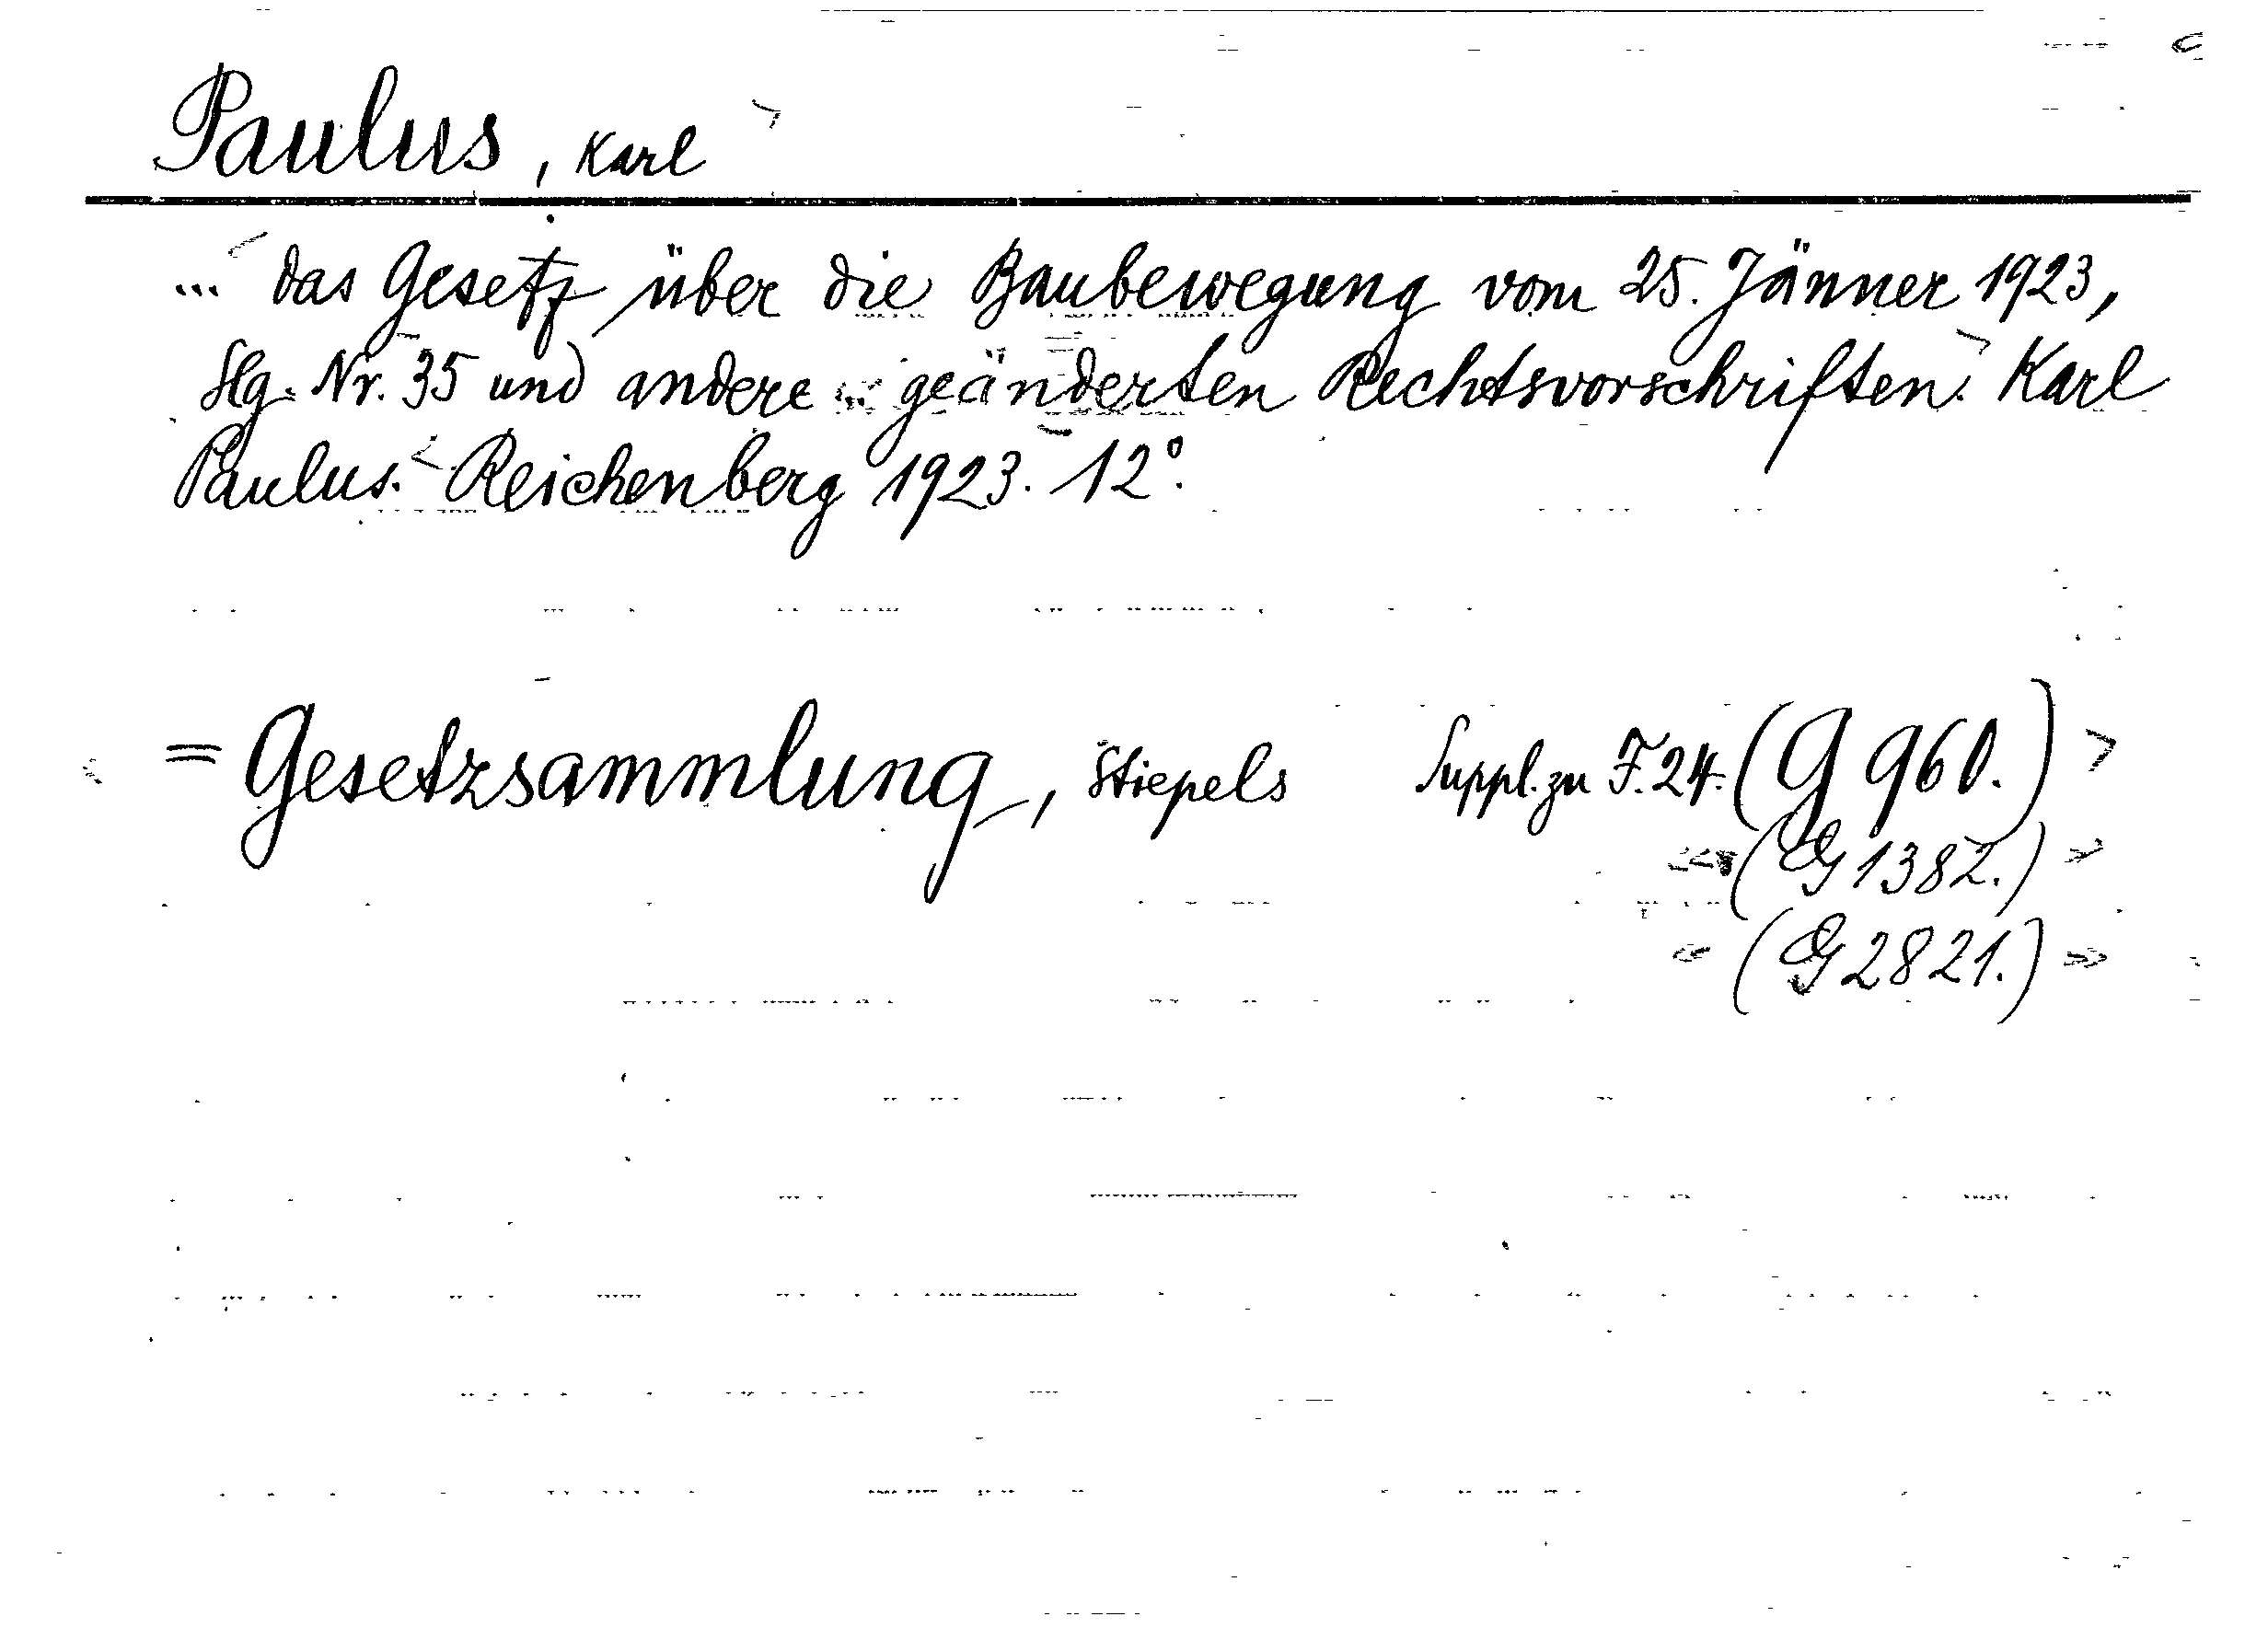 Paulus, Karl
... das Gesetz über die Baubewegung vom 25. Jänner 1923,
Slg. Nr. 35 und andere ... geänderten Rechtsvorschriften. Karl
Paulus. Reichenberg 1923. 12°.
= Gesetzsammlung, Stiepels Suppl. zu F. 24. (G 960.)
(G 1382.)
(G 2821.)